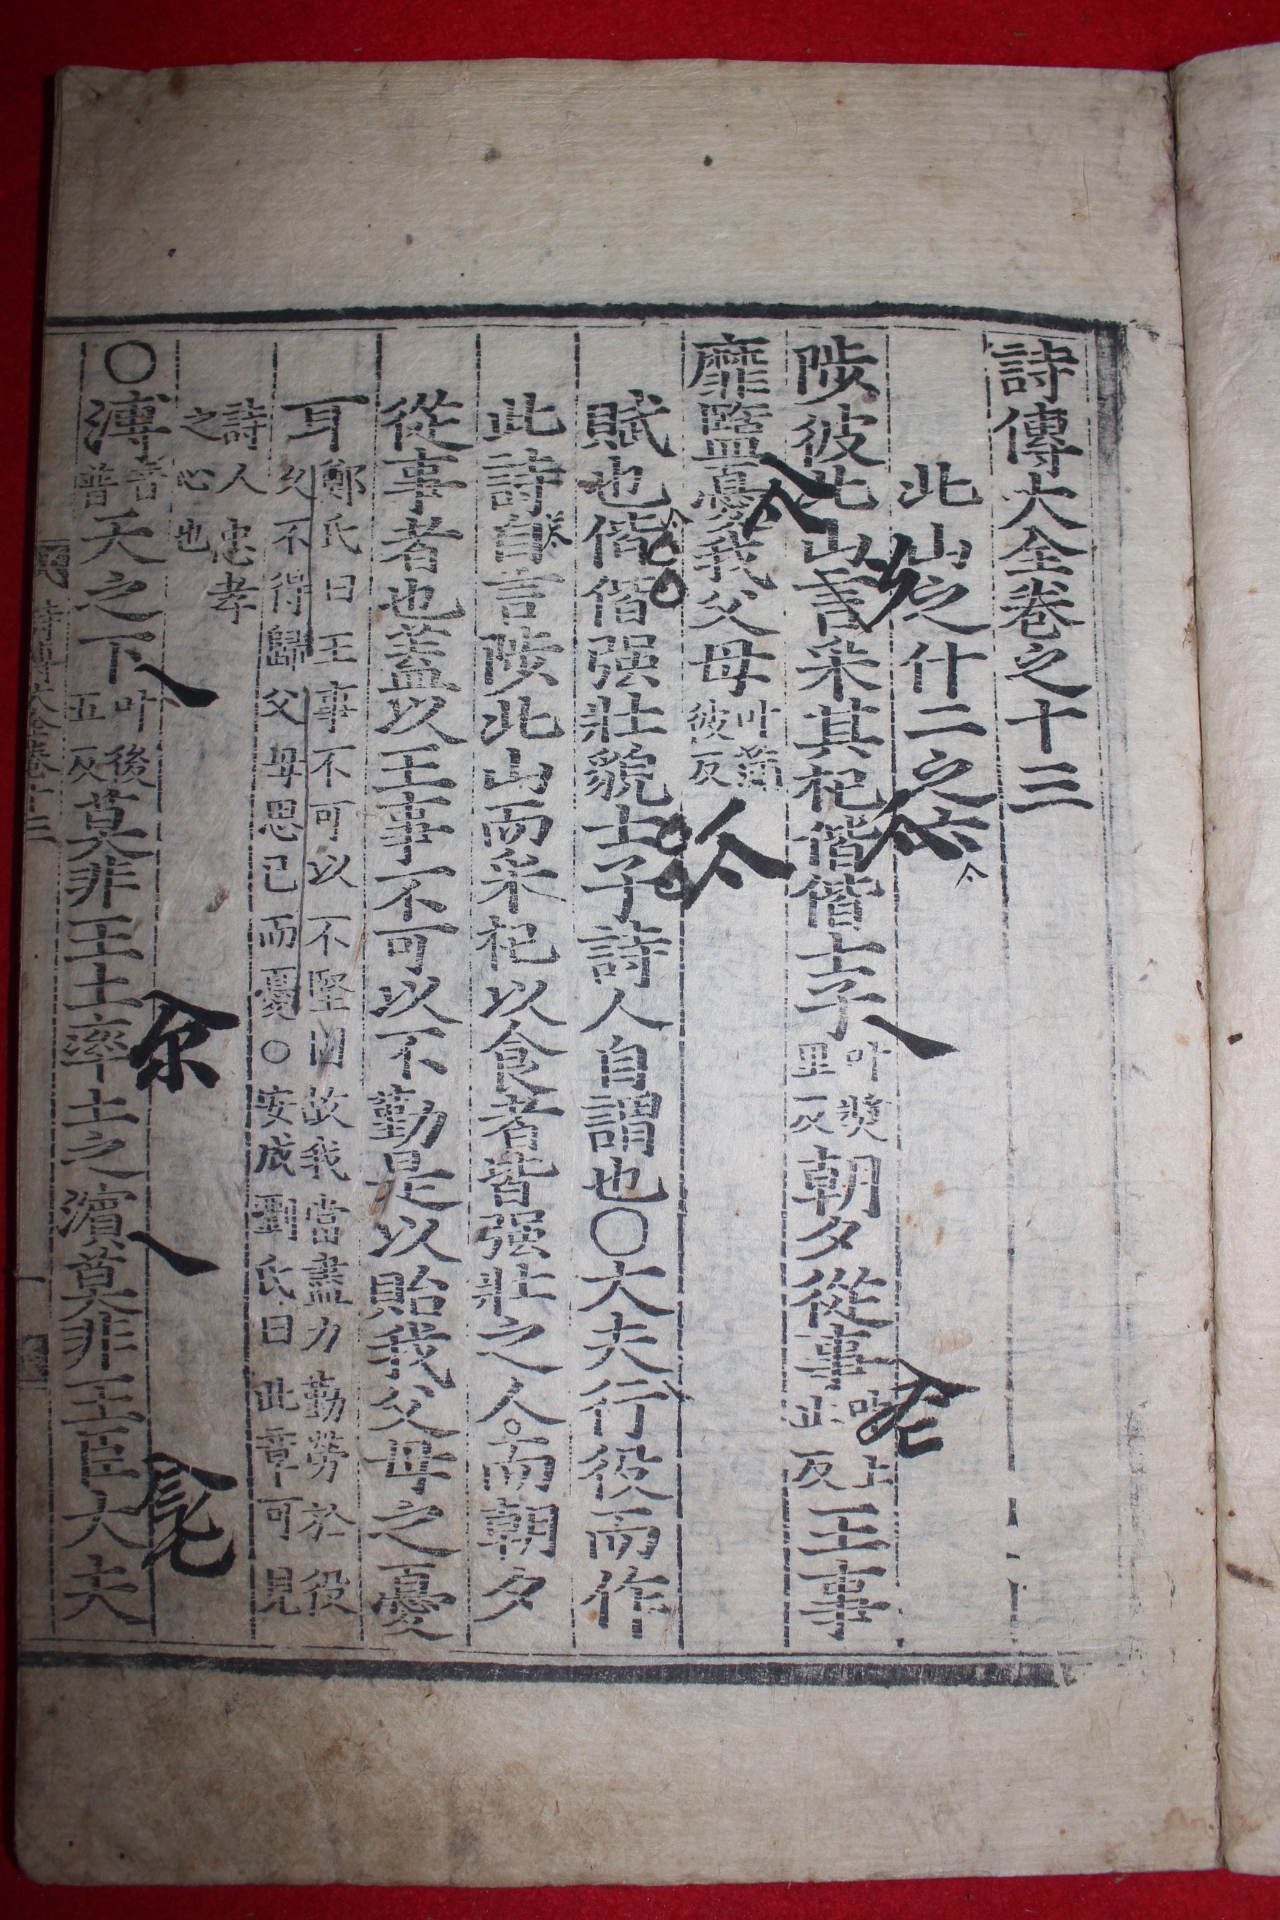 詩傳大全卷之十三
北山之什二之六
陟彼北山言采其杞偕偕士子叶奬里反朝夕從事叶上止反王事
靡盬憂我父母叶滿彼反
賦也偕偕强壯貌士子詩人自謂也○大夫行役而作
此詩自言陟北山而采杞以食者皆强壯之人而朝夕
從事者也蓋以王事不可以不勤是以貽我父母之憂
耳鄭氏曰王事不可以不堅固故我當盡力勤勞於役
久不得歸父母思已而憂○安成劉氏曰此章可見
詩人忠孝
之心也
○溥音普天之下叶後五反莫非王土率土之濱莫非王臣大夫
詩傳大全卷十三 一